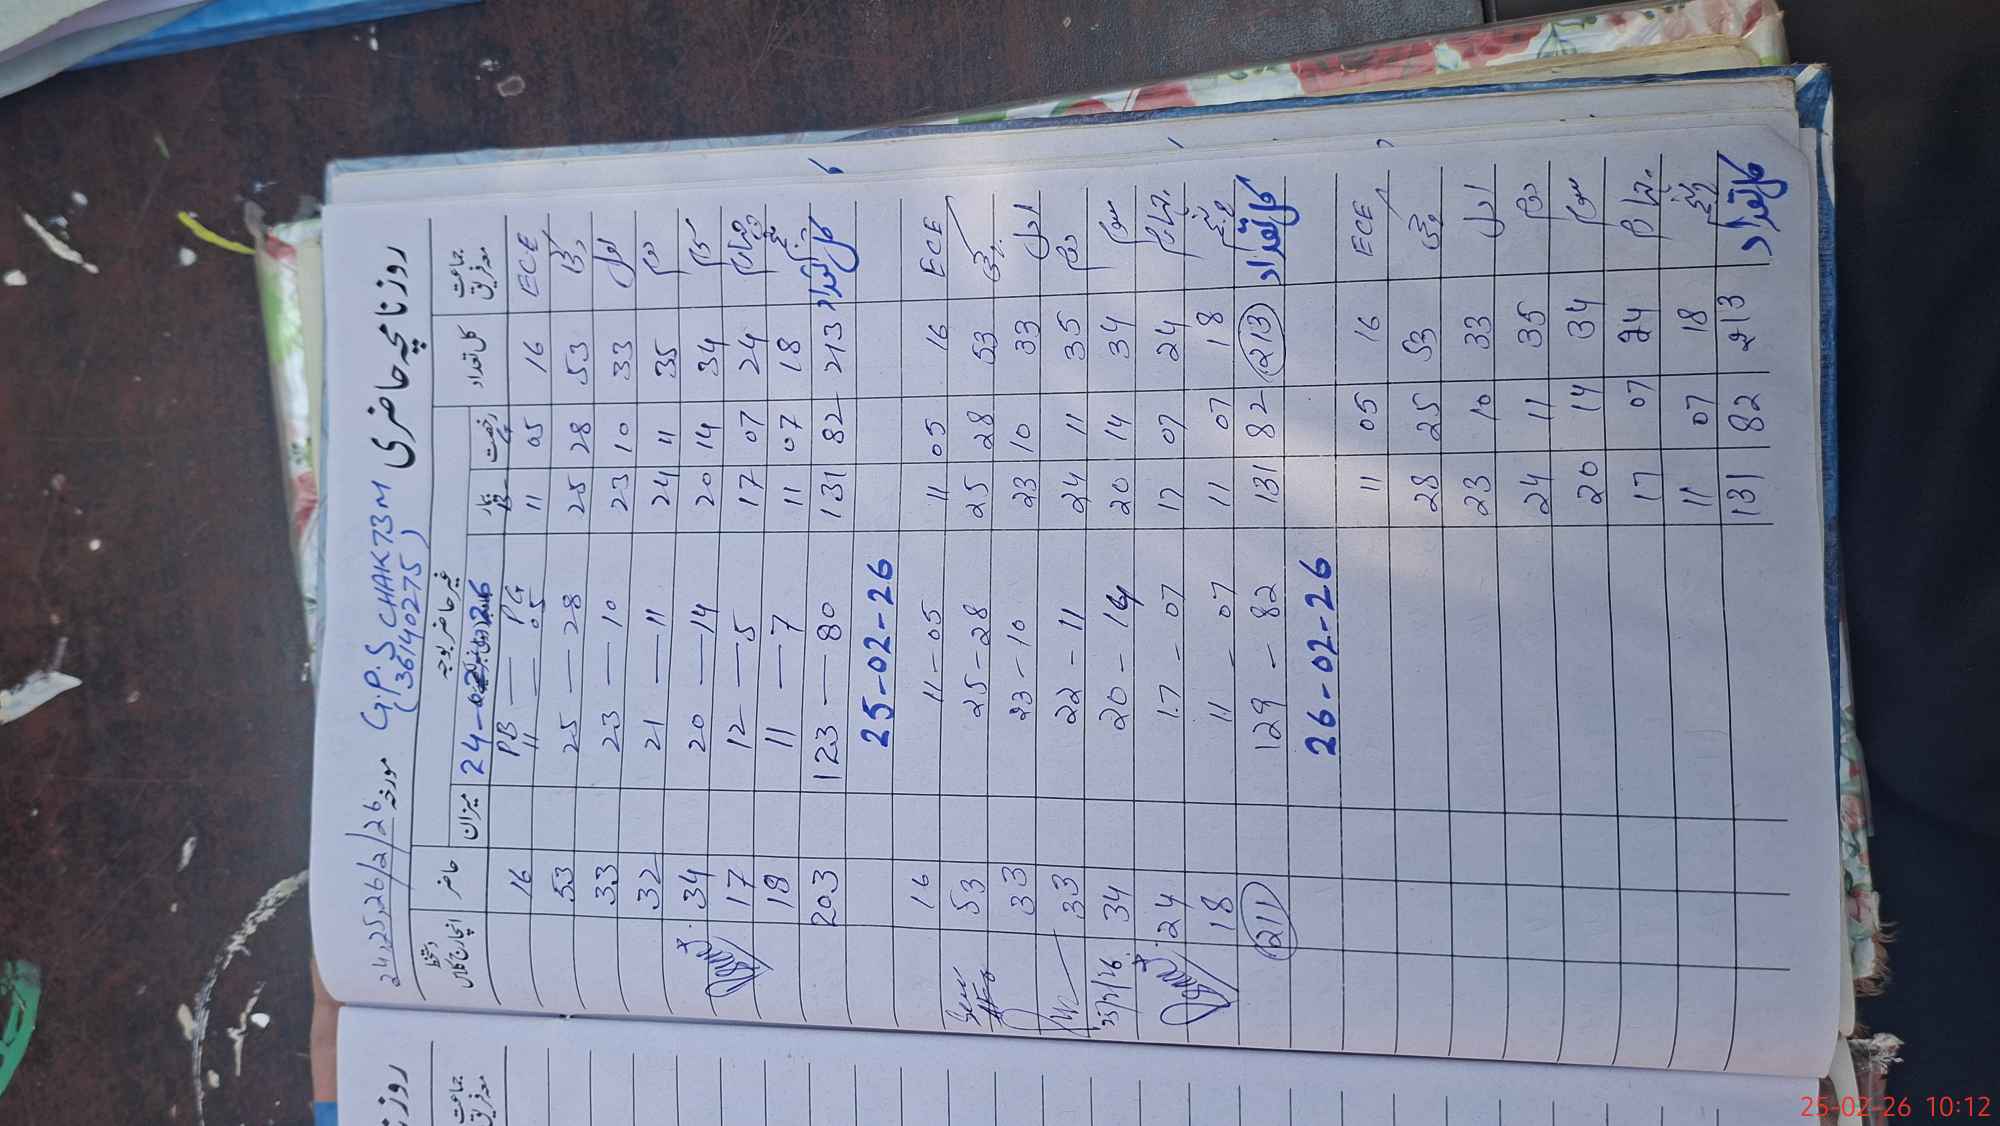 روزنامچہ حاضری G.P.S CHAK 73M مورخہ 24,25,26/2/26
(36140275)
جماعت معہ فریق کل تعداد رخصت بیمار غیر حاضر بوجہ میزان حاضر دستخط انچارج کلاس
24-02-26
PB — PG
ECE 16 05 11 11 — 05 16
کچی 53 28 25 25 — 28 53
اول 33 10 23 23 — 10 33
دوم 35 11 24 21 — 11 32
سوم 34 14 20 20 — 14 34
چہارم 24 07 17 12 — 5 17
پنجم 18 07 11 11 — 7 18
کل تعداد 213 82 131 123 — 80 203
25-02-26
ECE 16 05 11 11 - 05 16
کچی 53 28 25 25 - 28 53
اول 33 10 23 23 - 10 33
دوم 35 11 24 22 - 11 33
سوم 34 14 20 20 - 14 34
چہارم 24 07 17 17 - 07 24
پنجم 18 07 11 11 - 07 18
کل تعداد 213 82 131 129 - 82 211
26-02-26
ECE 16 05 11
کچی 53 25 28
اول 33 10 23
دوم 35 11 24
سوم 34 14 20
چہارم 24 07 17
پنجم 18 07 11
کل تعداد 213 82 131
جماعت معہ فریق
25-02-26 10:12